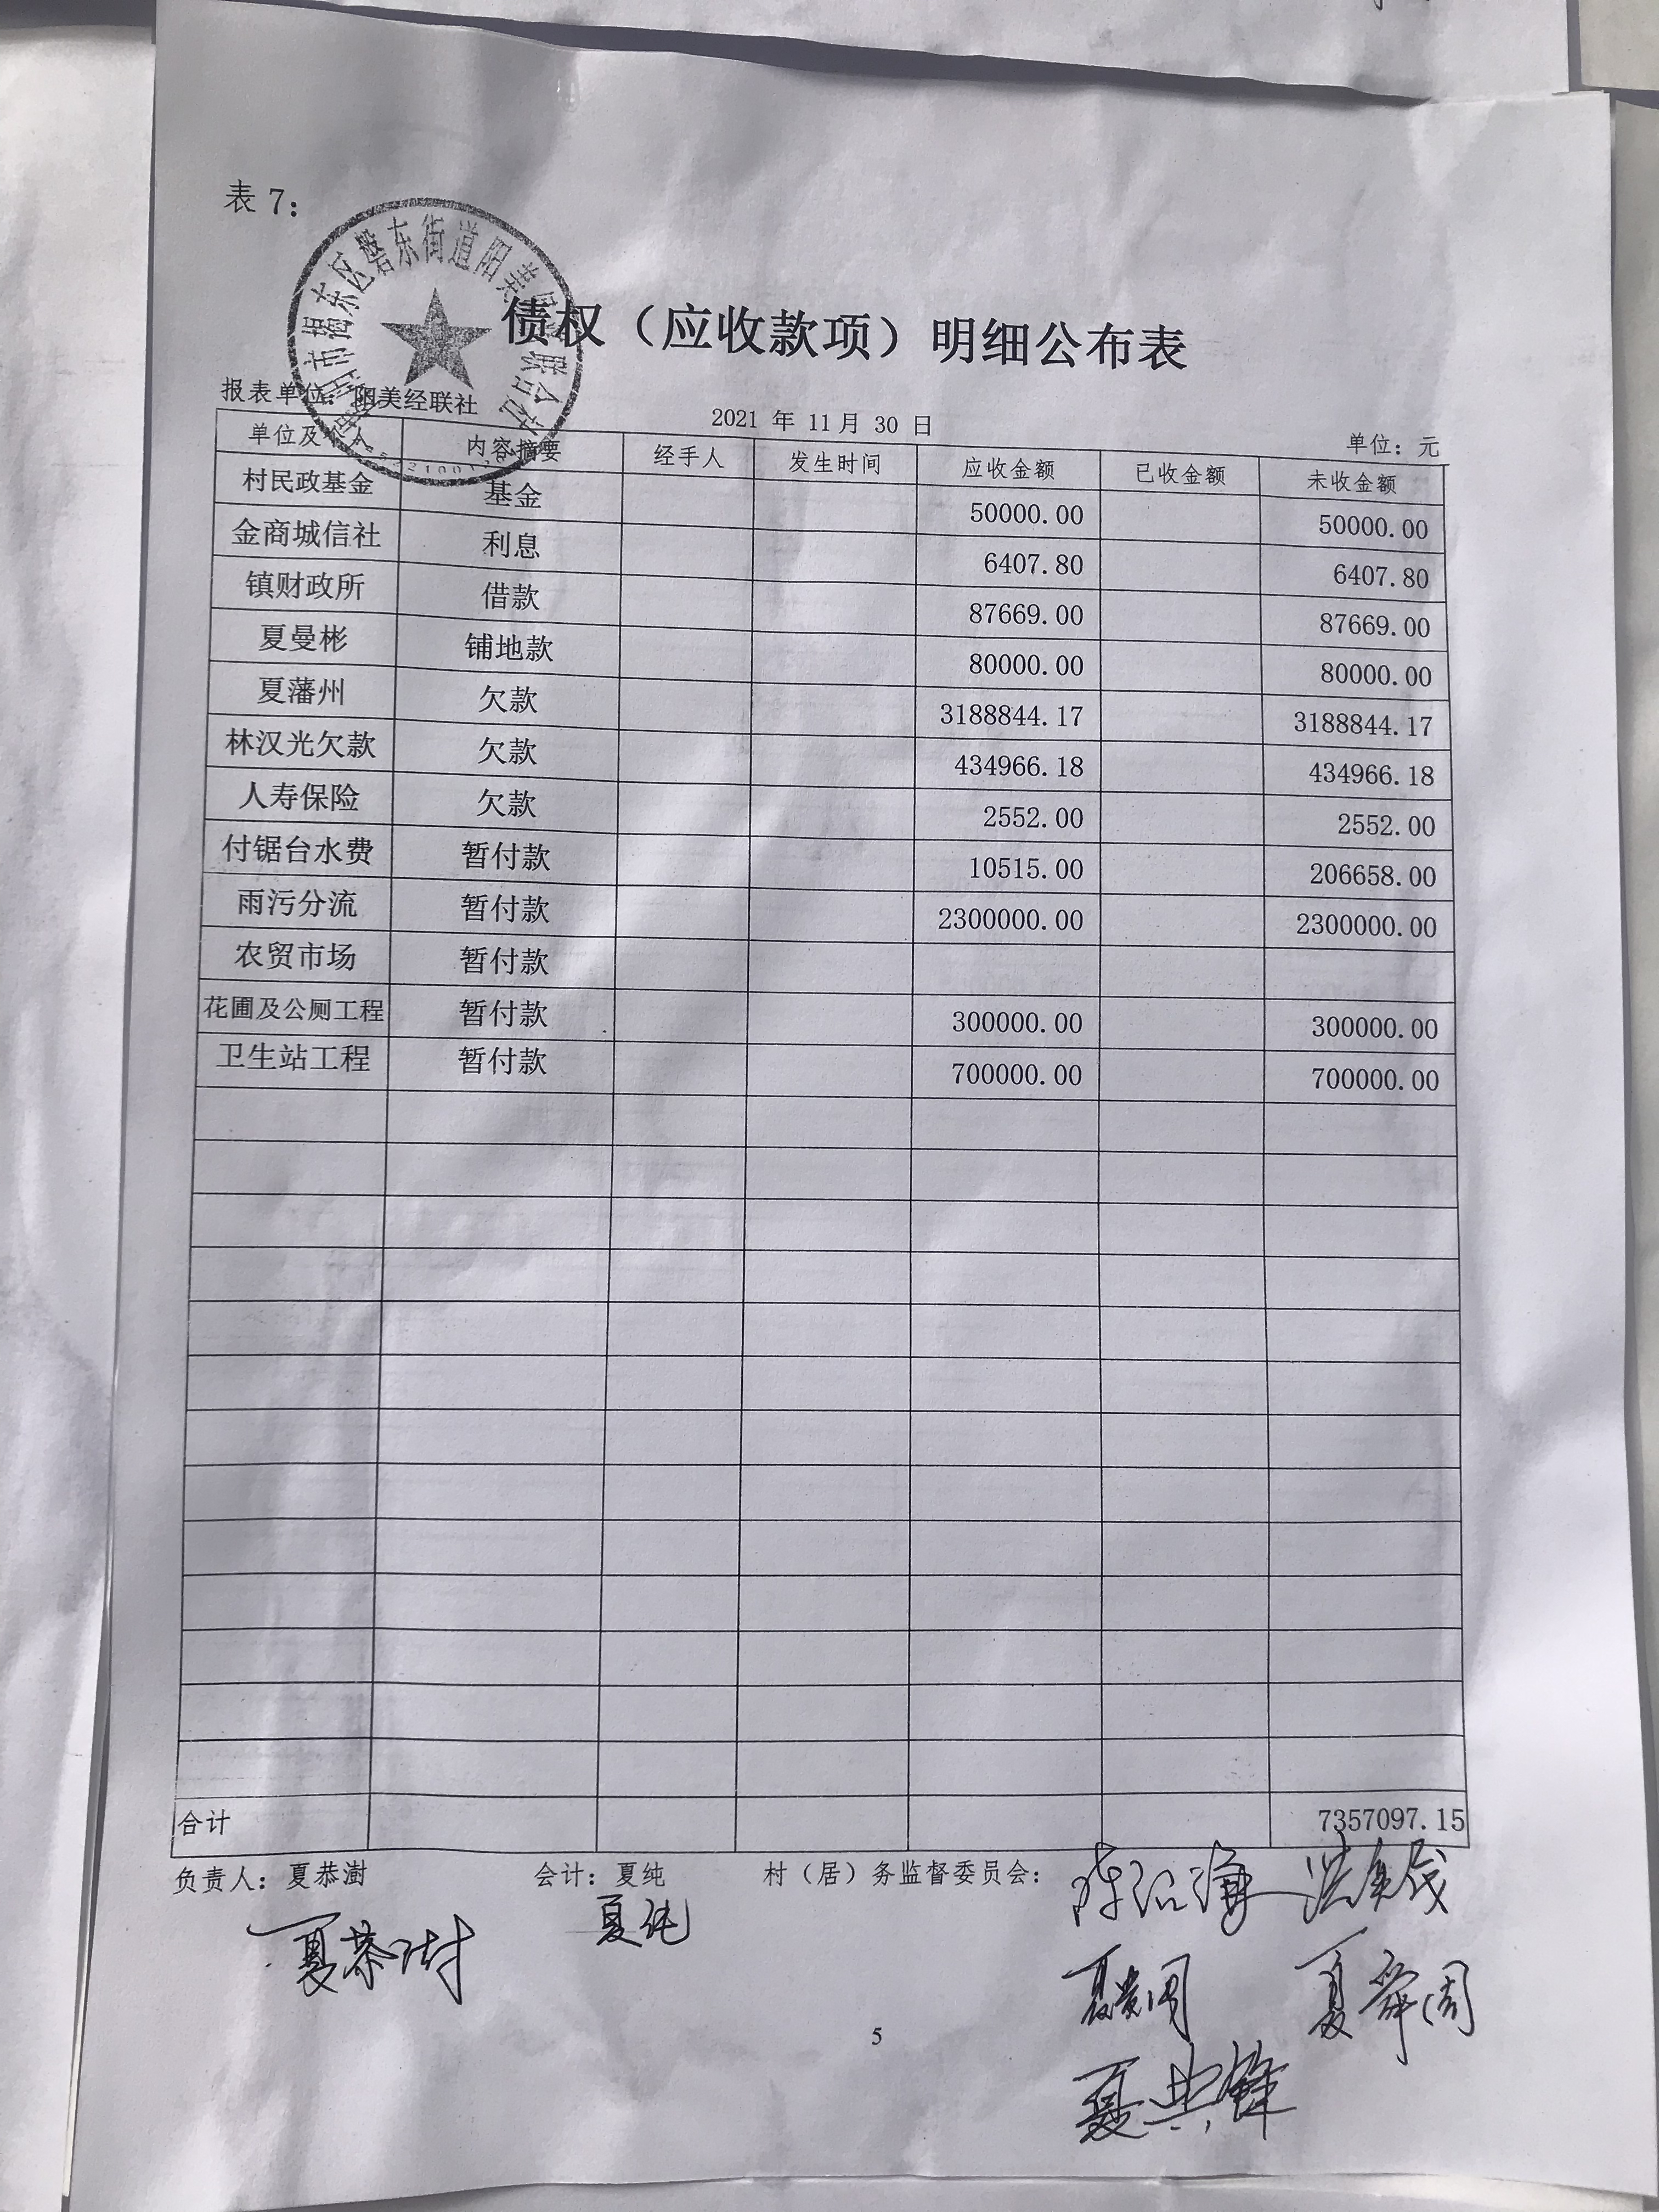 表 7:
市揭东区磐东街道阳美 联合社
债权（应收款项）明细公布表
报表单位: 阳美经联社 2021 年 11 月 30 日 单位: 元
单位及 人 内容摘要 经手人 发生时间 应收金额 已收金额 未收金额
村民政基金 基金 50000.00 50000.00
金商城信社 利息 6407.80 6407.80
镇财政所 借款 87669.00 87669.00
夏曼彬 铺地款 80000.00 80000.00
夏藩州 欠款 3188844.17 3188844.17
林汉光欠款 欠款 434966.18 434966.18
人寿保险 欠款 2552.00 2552.00
付锯台水费 暂付款 10515.00 206658.00
雨污分流 暂付款 2300000.00 2300000.00
农贸市场 暂付款
花圃及公厕工程 暂付款 300000.00 300000.00
卫生站工程 暂付款 700000.00 700000.00
合计 7357097.15
负责人: 夏恭澍 会计: 夏纯 村（居）务监督委员会:
夏恭澍 夏纯
夏舜周
夏典锋
5